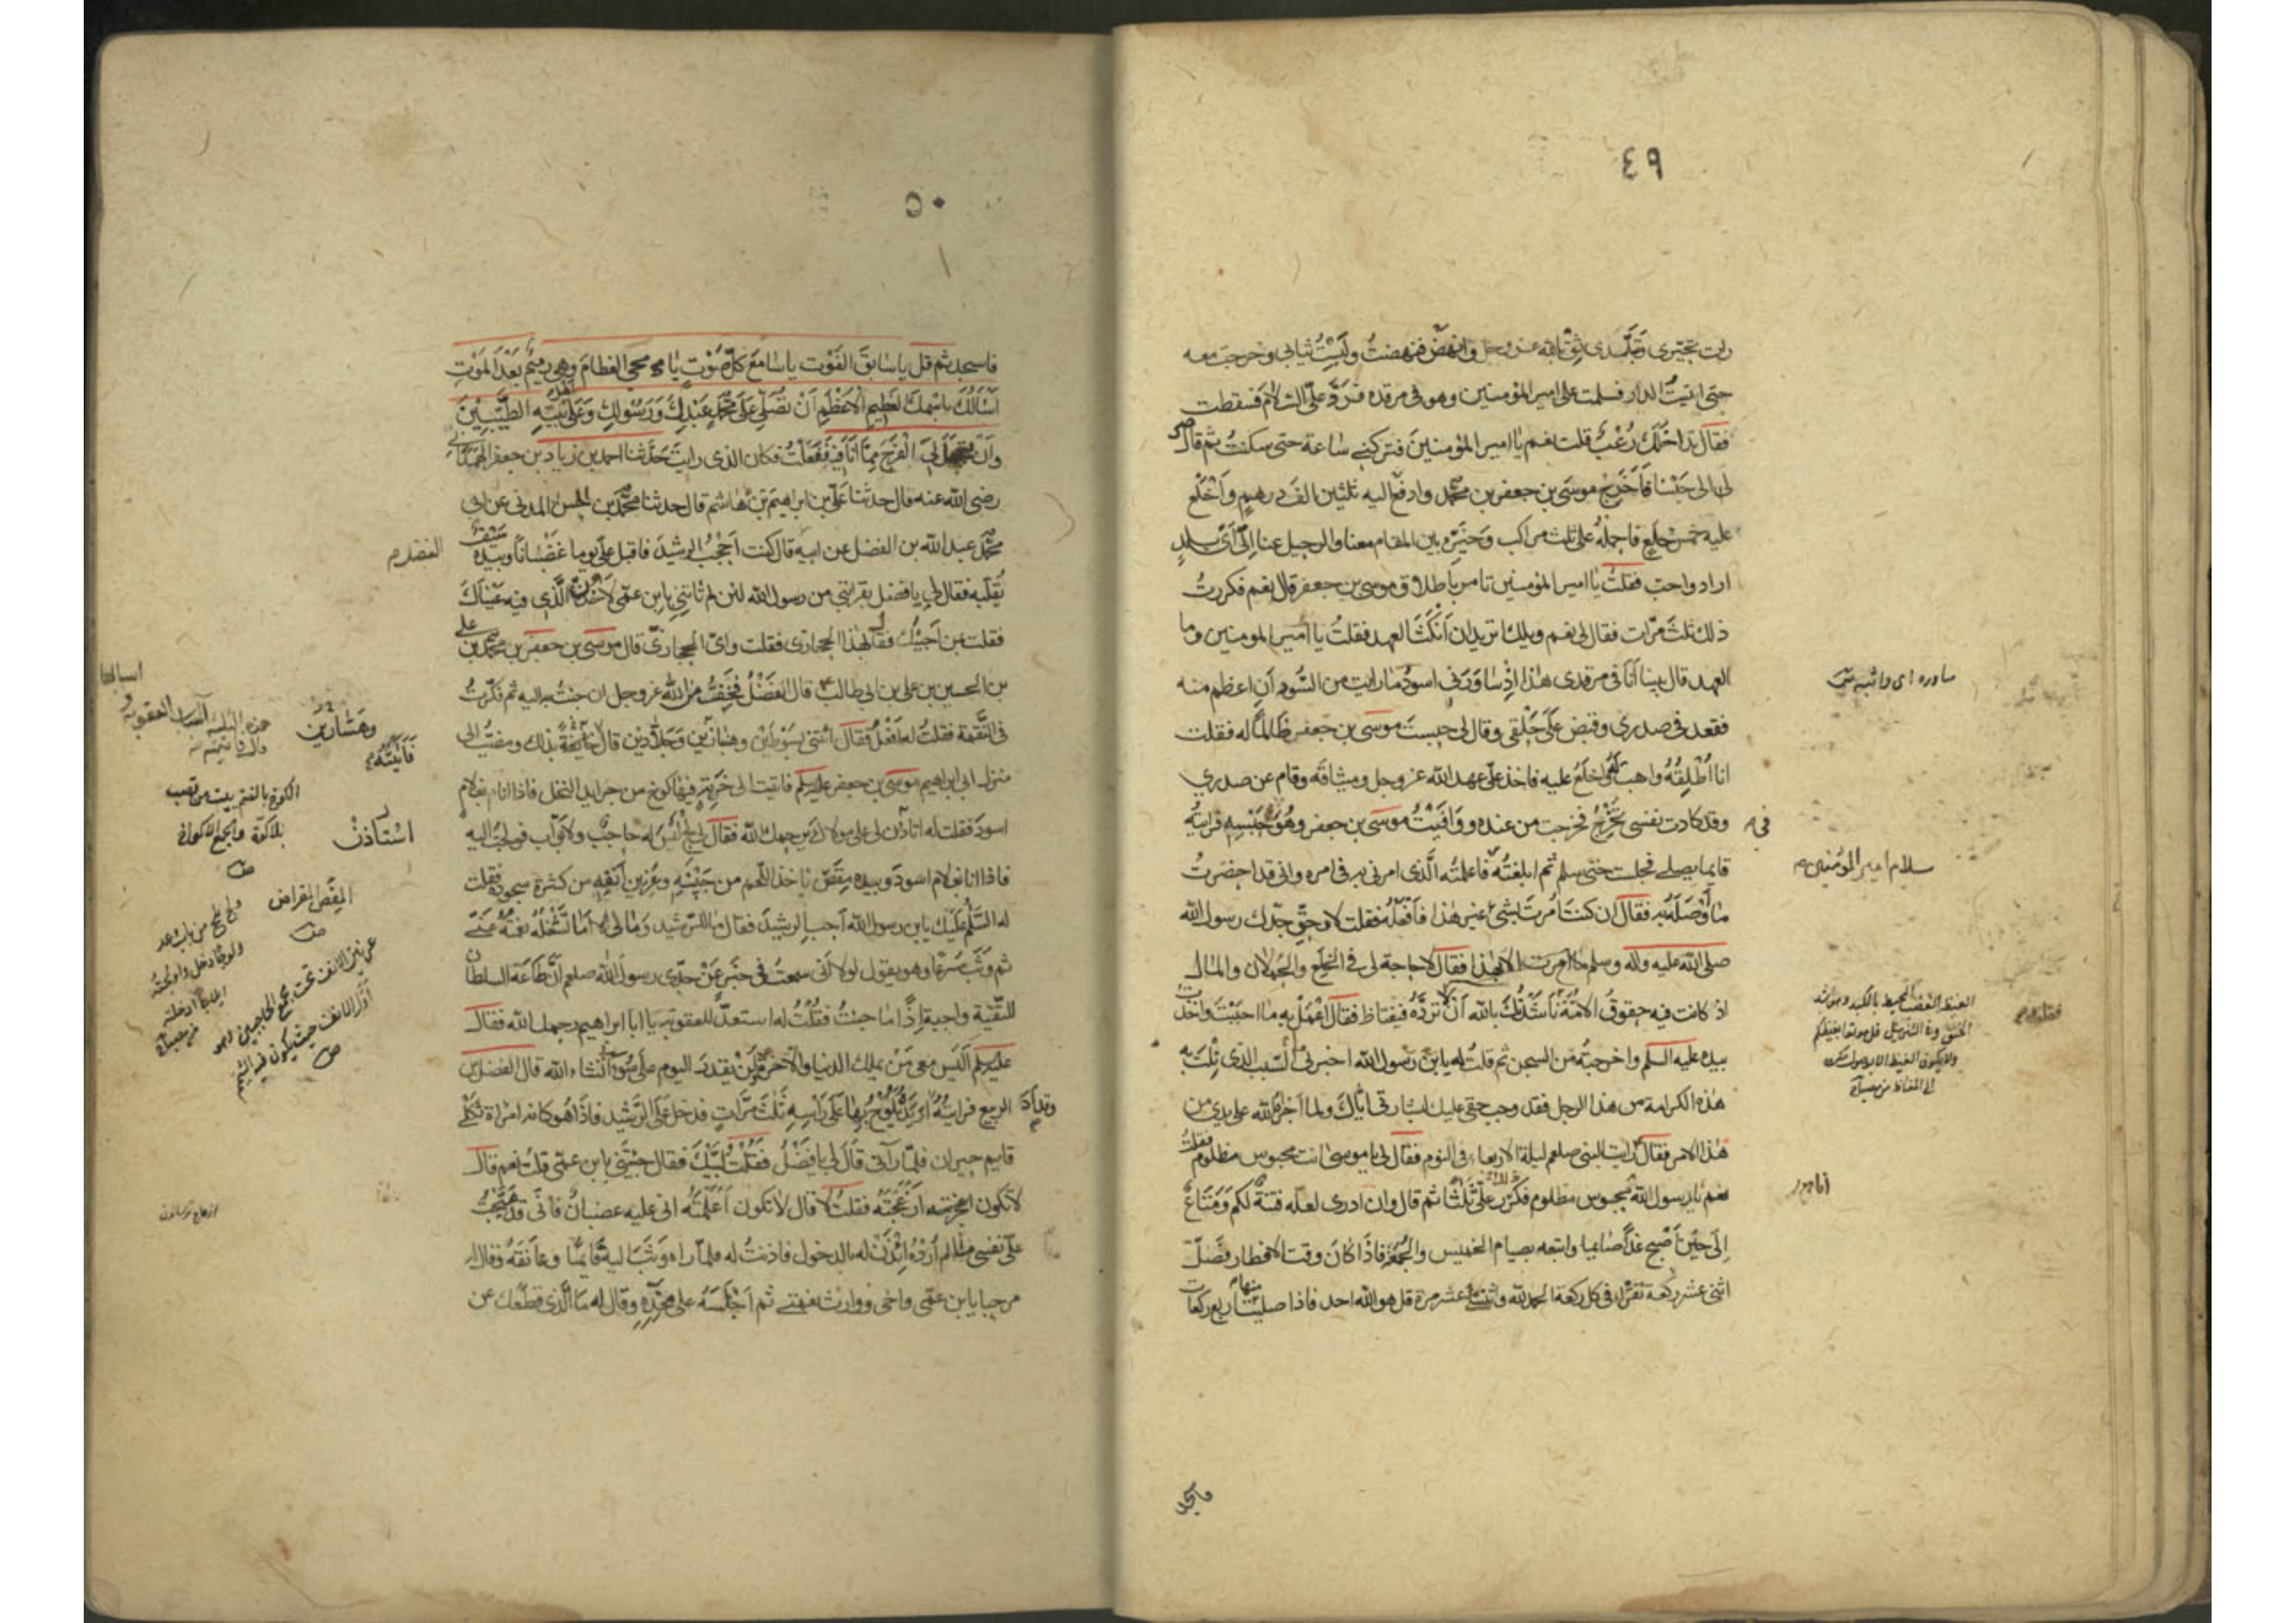 ٤٩
رات تحيّري وتبلّدي ثق بالله عز وجل وانهض فنهضتُ ولبستُ ثيابي وخرجت معه
حتى اتيتُ الدار فسلمت على امير المؤمنين وهو في مرقده فردّ علىّ السلام فسقطت
فقال تداخلك رُعْبٌ قلت نعم يا امير المؤمنين فتركني ساعة حتى سكنتُ ثم قال صر
لى الى حبسنا فَاَخْرِج موسى بن جعفر بن محمّد وادفع اليه ثلثين الف درهم وَاخْلَع
عليه خمس خلع فاحمله على ثلث مراكب وَخَيِّره بين المقام معنا والرحيل عنا الى اَىّ بلدٍ
اراد واحبّ فقلتُ يا امير المؤمنين تامر باطلاق موسى بن جعفر قال نعم فكررتُ
ذلك ثلثَ مرّات فقال لى نعم ويلك اتريد ان اَنْكُثَ العهد فقلتُ يا امير المومنين وما
العهد قال بينا اَنَا فى مرقدى هذا اِذْ سَاوَرَنى اسودُ ما رايت من السُّودِ اَن اعظم منه
فقعد فى صدرى وقبض على حَلْقى وقال لى حبستَ موسى بن جعفر ظالماً له فقلت
انا اُطْلِقُهُ واهب له واخلَعُ عليه فاخذ علىّ عهد الله عز وجل وميثاقه وقام عن صدري
وقد كادت نفسى تَخْرُجُ فخرجت من عنده ووَافَيْتُ موسى بن جعفر وهُوَ حَبْسِهِ فرايتُهُ
فى
قايما يصلى فجلست حتى سلم ثم ابلغتُهُ فاعلمتُه الَّذى امرنى به فى امره وانى قد احضرتُ
ما وَصَلَه به فقال ان كنتَ اُمِرتَ بشىءٍ غير هذا فَافْعَلْهُ فقلت لا وحقِّ جدّك رسول الله
صلى الله عليه وآله وسلم ما اُمرت الا بهذا فقال لا حاجة لى فى الخلَع والحُملان والمال
اذ كانت فيه حقوقُ الامّة نَاشَدْتُكَ بالله اَنْ لا ترُدَّهُ فيغتاظ فقال اِعْمَلْ به ما احبَبْتَ واخذت
بيده عليه السلم واخرجتُه من السجن ثم قلتُ له يا بن رسول الله اخبرنى ما السّبب الذى نِلْتَ به
هذه الكرامة من هذا الرجل فقد وجب حقى عليك لبشارتى ايّاكَ ولما اجراه الله على يدى من
هذا الامر فقال رايت النبى صلعم ليلة الاربعاء فى النوم فقال لى يا موسى انت محبوس مظلوم فقلتُ
نعم يا رسول الله محبوس مظلوم فكرّر علىّ ذلك ثَلثًا ثم قال وان ادرى لعله فتنةٌ لكم وَمَتَاعٌ
اِلَى حينٍ اَصْبِح غدًا صايما واتبعه بصيام الخميس والجُمُعَةِ فاذَا كانَ وقت الافطار فَصَلّ
اثنى عشر ركعة تقرَاُ فى كل ركعة الحمد لله واثنتى عشر مرة قل هو الله احد فاذا صليتَ منها اربع ركعات
ساوره اى واثبه
سلام امير المؤمنين
الغيظ الغضب المحيط بالكبد وهو اشد
الحنق وفى التنزيل قل موتوا بغيظكم
فاسجد
٥٠
فاسجد ثم قل يا سَابقَ الفَوْت يا سَامعَ كلّ صَوْتٍ يا محيى العظامَ وهى رميمٌ بَعْدَ المَوْتِ
اَسْاَلُكَ باسْمِكَ العَظيم الاَعْظَمِ اَنْ تُصَلّىَ عَلَى محَمَّدٍ عَبْدِكَ وَرَسُولِكَ وَعَلَى اَهْلِ بَيْتِهِ الطَيّبينَ
وَاَنْ تُعَجِّلَ لى الْفَرَجَ مِمَّا اَنَا فيه فَفَعَلْتُ فكان الذى رايتَ حَدَّثنا احمد بن زياد بن جعفر الهمدانى
رضى الله عنه قال حدثنا علىّ بن ابراهيم بن هَاشم قال حدثنا محمّد بن الحسن المدنى عن ابى
محمّد عبد الله بن الفضل عن ابيه قال كنت اَحْجُبُ الرشيدَ فاقبل علىّ يوما غَضْبانًا وبيده سَيْفٌ
يُقَلّبه فقال لى يا فضل بقرابتى من رسول الله لئن لم تاتنى بابن عمّى لآخُذَنَّ الَّذى فيه عَيْنَاكَ
فقلت بمن اَجيئُكَ فقال بهذا الحجازى فقلت واىّ الحجازىّ قال موسى بن جعفر بن محمّد بن على
بن الحسين بن على بن ابى طالب قال الفَضْلُ فخِفْتُ من الله عز وجل ان جئتُ به اليه ثم فكّرتُ
فى النَّقمة فقلتُ له افعَلُ فقال ائتنى بسَوْطَيْن وهبّازَين وَجَلاّدَين قال فَاَتَيْتُهُ بذلك ومضيتُ الى
منزل ابى ابراهيم موسى بن جعفر عليه السلم فاتيت الى خَرِبَةٍ فيها كوخٌ من جرايد النخل فاذا انا بغلام
اسودَ فقلت له استاذن لى على مولاكَ يرحمك الله فقال لى لِجْ لَيْسَ له حاجبٌ ولا بَوّاب فولجتُ اليه
فاذا انا بغلام اسودَ وبيده مِقَصٌّ ياخذ اللّحم من جَبينهِ وعِرْنين اَنْفِهِ من كثرة سجوده فقلت
له السَّلمُ عليكَ يا بن رسول الله اَجب الرشيدَ فقال ما للرّشيد وَمَا لى اَمَا تَشْغَلُهُ نعمَتُهُ عَنّى
ثم وَثَبَ مُسْرعًا وهو يقول لولا اَنّى سمعتُ فى خبَرٍ عَنْ جدّى رسول الله صلعم اَنّ طَاعَة السلطان
للتّقيّة واجبة اِذًا ما جئتُ فقُلْتُ له استعدّ للعقوبة يا ابا ابراهيم رحمك الله فقال
عليه السلم اَلَيس معى مَنْ يملك الدنيا والآخرة وَلَنْ يقدرَ اليوم على سُوءٍ بى اِنْ شَاء الله قال الفضل بن
الربيع فرايتُهُ وقد اَدَارَ يَدَهُ يُلَوِّحُ بها عَلَى رَاْسِهِ ثَلثَ مرّاتٍ فدخل على الرّشيد فاذَا هُو كانه امراة ثكلى
قايم حيران فلمّا رآنى قَالَ لى يا فَضْلُ فَقُلْتُ لَبَّيْكَ فقال جئتَنى بابن عمّى قلتُ نعم قال
لا تكون اَزْعَجْتَهُ فقلتُ لا قال لا تكون اَعْلَمْتَهُ انى عليه غضبانُ فانّى قد هَيَّجْتُ
علىّ نفسى ما لم اُرِدْه ائْذَنْ له بالدخول فاذنتُ له فلمّا رآه وَثَبَ اليه قايمًا وعانَقَهُ وقال له
مرحبا يا بن عمّى واخى ووارث نعمتى ثم اَجْلَسَهُ على فخذهِ وقال له ما الَّذى قطَعَك عن
الفضل م
وهَسّارين
فَاَتَيْتُهُ
استاذنْ
الكوخ بالضم بيت من قصب
بلا كوّة والجمع الاكواخ
المقص المقراض